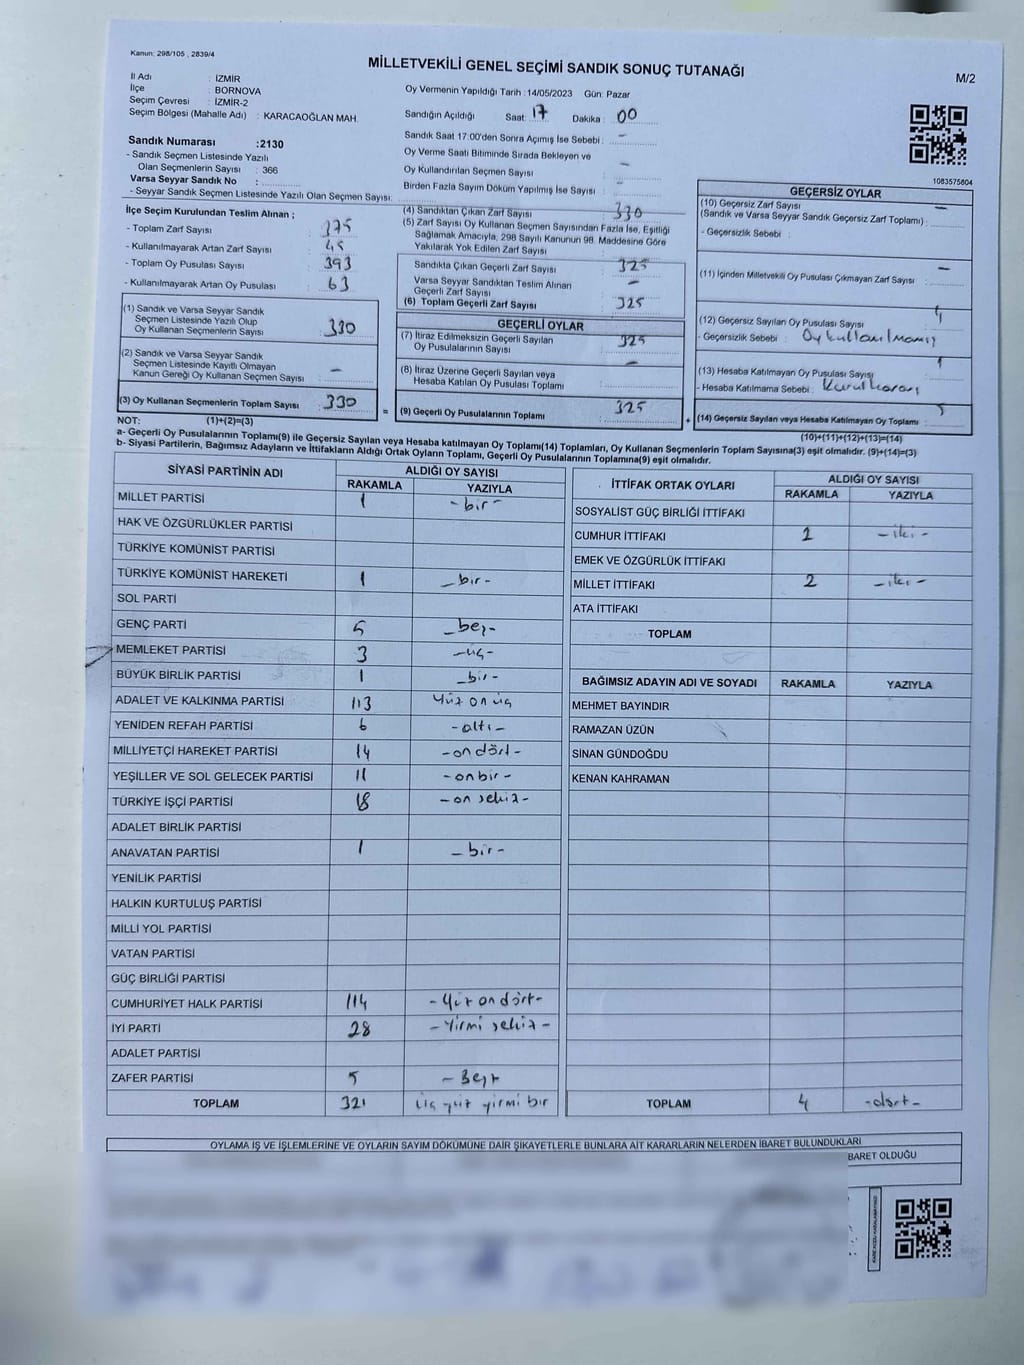 Kanun: 298/105 , 2839/4
MİLLETVEKİLİ GENEL SEÇİMİ SANDIK SONUÇ TUTANAĞI
M/2
İl Adı : İZMİR
İlçe : BORNOVA
Seçim Çevresi : İZMİR-2
Seçim Bölgesi (Mahalle Adı) : KARACAOĞLAN MAH.
Oy Vermenin Yapıldığı Tarih : 14/05/2023 Gün: Pazar
Sandığın Açıldığı Saat : 17 Dakika : 00
Sandık Saat 17:00'den Sonra Açımış İse Sebebi : -
Oy Verme Saati Bitiminde Sırada Bekleyen ve
Oy Kullandırılan Seçmen Sayısı : -
Birden Fazla Sayım Döküm Yapılmış İse Sayısı : -
Sandık Numarası : 2130
- Sandık Seçmen Listesinde Yazılı
Olan Seçmenlerin Sayısı : 366
Varsa Seyyar Sandık No :
- Seyyar Sandık Seçmen Listesinde Yazılı Olan Seçmen Sayısı:
İlçe Seçim Kurulundan Teslim Alınan ;
- Toplam Zarf Sayısı : 375
- Kullanılmayarak Artan Zarf Sayısı : 45
- Toplam Oy Pusulası Sayısı : 393
- Kullanılmayarak Artan Oy Pusulası : 63
(1) Sandık ve Varsa Seyyar Sandık
Seçmen Listesinde Yazılı Olup
Oy Kullanan Seçmenlerin Sayısı : 330
(2) Sandık ve Varsa Seyyar Sandık
Seçmen Listesinde Kayıtlı Olmayan
Kanun Gereği Oy Kullanan Seçmen Sayısı : -
(3) Oy Kullanan Seçmenlerin Toplam Sayısı : 330
(4) Sandıktan Çıkan Zarf Sayısı : 330
(5) Zarf Sayısı Oy Kullanan Seçmen Sayısından Fazla İse, Eşitliği
Sağlamak Amacıyla, 298 Sayılı Kanunun 98. Maddesine Göre
Yakılarak Yok Edilen Zarf Sayısı :
Sandıkta Çıkan Geçerli Zarf Sayısı : 325
Varsa Seyyar Sandıktan Teslim Alınan
Geçerli Zarf Sayısı : -
(6) Toplam Geçerli Zarf Sayısı : 325
GEÇERLİ OYLAR
(7) İtiraz Edilmeksizin Geçerli Sayılan
Oy Pusulalarının Sayısı : 325
(8) İtiraz Üzerine Geçerli Sayılan veya
Hesaba Katılan Oy Pusulası Toplamı : -
= (9) Geçerli Oy Pusulalarının Toplamı : 325
1083575804
GEÇERSİZ OYLAR
(10) Geçersiz Zarf Sayısı
(Sandık ve Varsa Seyyar Sandık Geçersiz Zarf Toplamı) : -
- Geçersizlik Sebebi :
(11) İçinden Milletvekili Oy Pusulası Çıkmayan Zarf Sayısı : -
(12) Geçersiz Sayılan Oy Pusulası Sayısı : 4
- Geçersizlik Sebebi : Oy kullanılmamış
(13) Hesaba Katılmayan Oy Pusulası Sayısı : 1
- Hesaba Katılmama Sebebi : Kurul kararı
+ (14) Geçersiz Sayılan veya Hesaba Katılmayan Oy Toplamı : 5
NOT: (1)+(2)=(3)
(10)+(11)+(12)+(13)=(14)
a- Geçerli Oy Pusulalarının Toplamı(9) ile Geçersiz Sayılan veya Hesaba katılmayan Oy Toplamı(14) Toplamları, Oy Kullanan Seçmenlerin Toplam Sayısına(3) eşit olmalıdır. (9)+(14)=(3)
b- Siyasi Partilerin, Bağımsız Adayların ve İttifakların Aldığı Ortak Oyların Toplamı, Geçerli Oy Pusulalarının Toplamına(9) eşit olmalıdır.
SİYASİ PARTİNİN ADI ALDIĞI OY SAYISI
RAKAMLA YAZIYLA
MİLLET PARTİSİ 1 - bir -
HAK VE ÖZGÜRLÜKLER PARTİSİ
TÜRKİYE KOMÜNİST PARTİSİ
TÜRKİYE KOMÜNİST HAREKETİ 1 - bir -
SOL PARTİ
GENÇ PARTİ 5 - beş -
MEMLEKET PARTİSİ 3 - üç -
BÜYÜK BİRLİK PARTİSİ 1 - bir -
ADALET VE KALKINMA PARTİSİ 113 Yüz on üç
YENİDEN REFAH PARTİSİ 6 - altı -
MİLLİYETÇİ HAREKET PARTİSİ 14 - on dört -
YEŞİLLER VE SOL GELECEK PARTİSİ 11 - on bir -
TÜRKİYE İŞÇİ PARTİSİ 18 - on sekiz -
ADALET BİRLİK PARTİSİ
ANAVATAN PARTİSİ 1 - bir -
YENİLİK PARTİSİ
HALKIN KURTULUŞ PARTİSİ
MİLLİ YOL PARTİSİ
VATAN PARTİSİ
GÜÇ BİRLİĞİ PARTİSİ
CUMHURİYET HALK PARTİSİ 114 - Yüz on dört -
İYİ PARTİ 28 - Yirmi sekiz -
ADALET PARTİSİ
ZAFER PARTİSİ 5 - Beş -
TOPLAM 321 Üç yüz yirmi bir
İTTİFAK ORTAK OYLARI ALDIĞI OY SAYISI
RAKAMLA YAZIYLA
SOSYALİST GÜÇ BİRLİĞİ İTTİFAKI
CUMHUR İTTİFAKI 2 - iki -
EMEK VE ÖZGÜRLÜK İTTİFAKI
MİLLET İTTİFAKI 2 - iki -
ATA İTTİFAKI
TOPLAM
BAĞIMSIZ ADAYIN ADI VE SOYADI RAKAMLA YAZIYLA
MEHMET BAYINDIR
RAMAZAN ÜZÜN
SİNAN GÜNDOĞDU
KENAN KAHRAMAN
TOPLAM 4 - dört -
OYLAMA İŞ VE İŞLEMLERİNE VE OYLARIN SAYIM DÖKÜMÜNE DAİR ŞİKAYETLERLE BUNLARA AİT KARARLARIN NELERDEN İBARET BULUNDUKLARI
BARET OLDUĞU